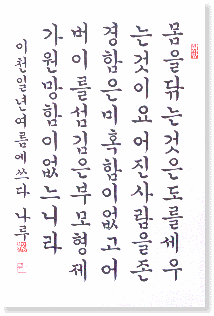 몸을닦는것은도를세우
는것이요어진사람을존
경함은미혹함이없고어
버이를섬김은부모형제
가원망함이없느니라
이천일년여름에쓰다 나루